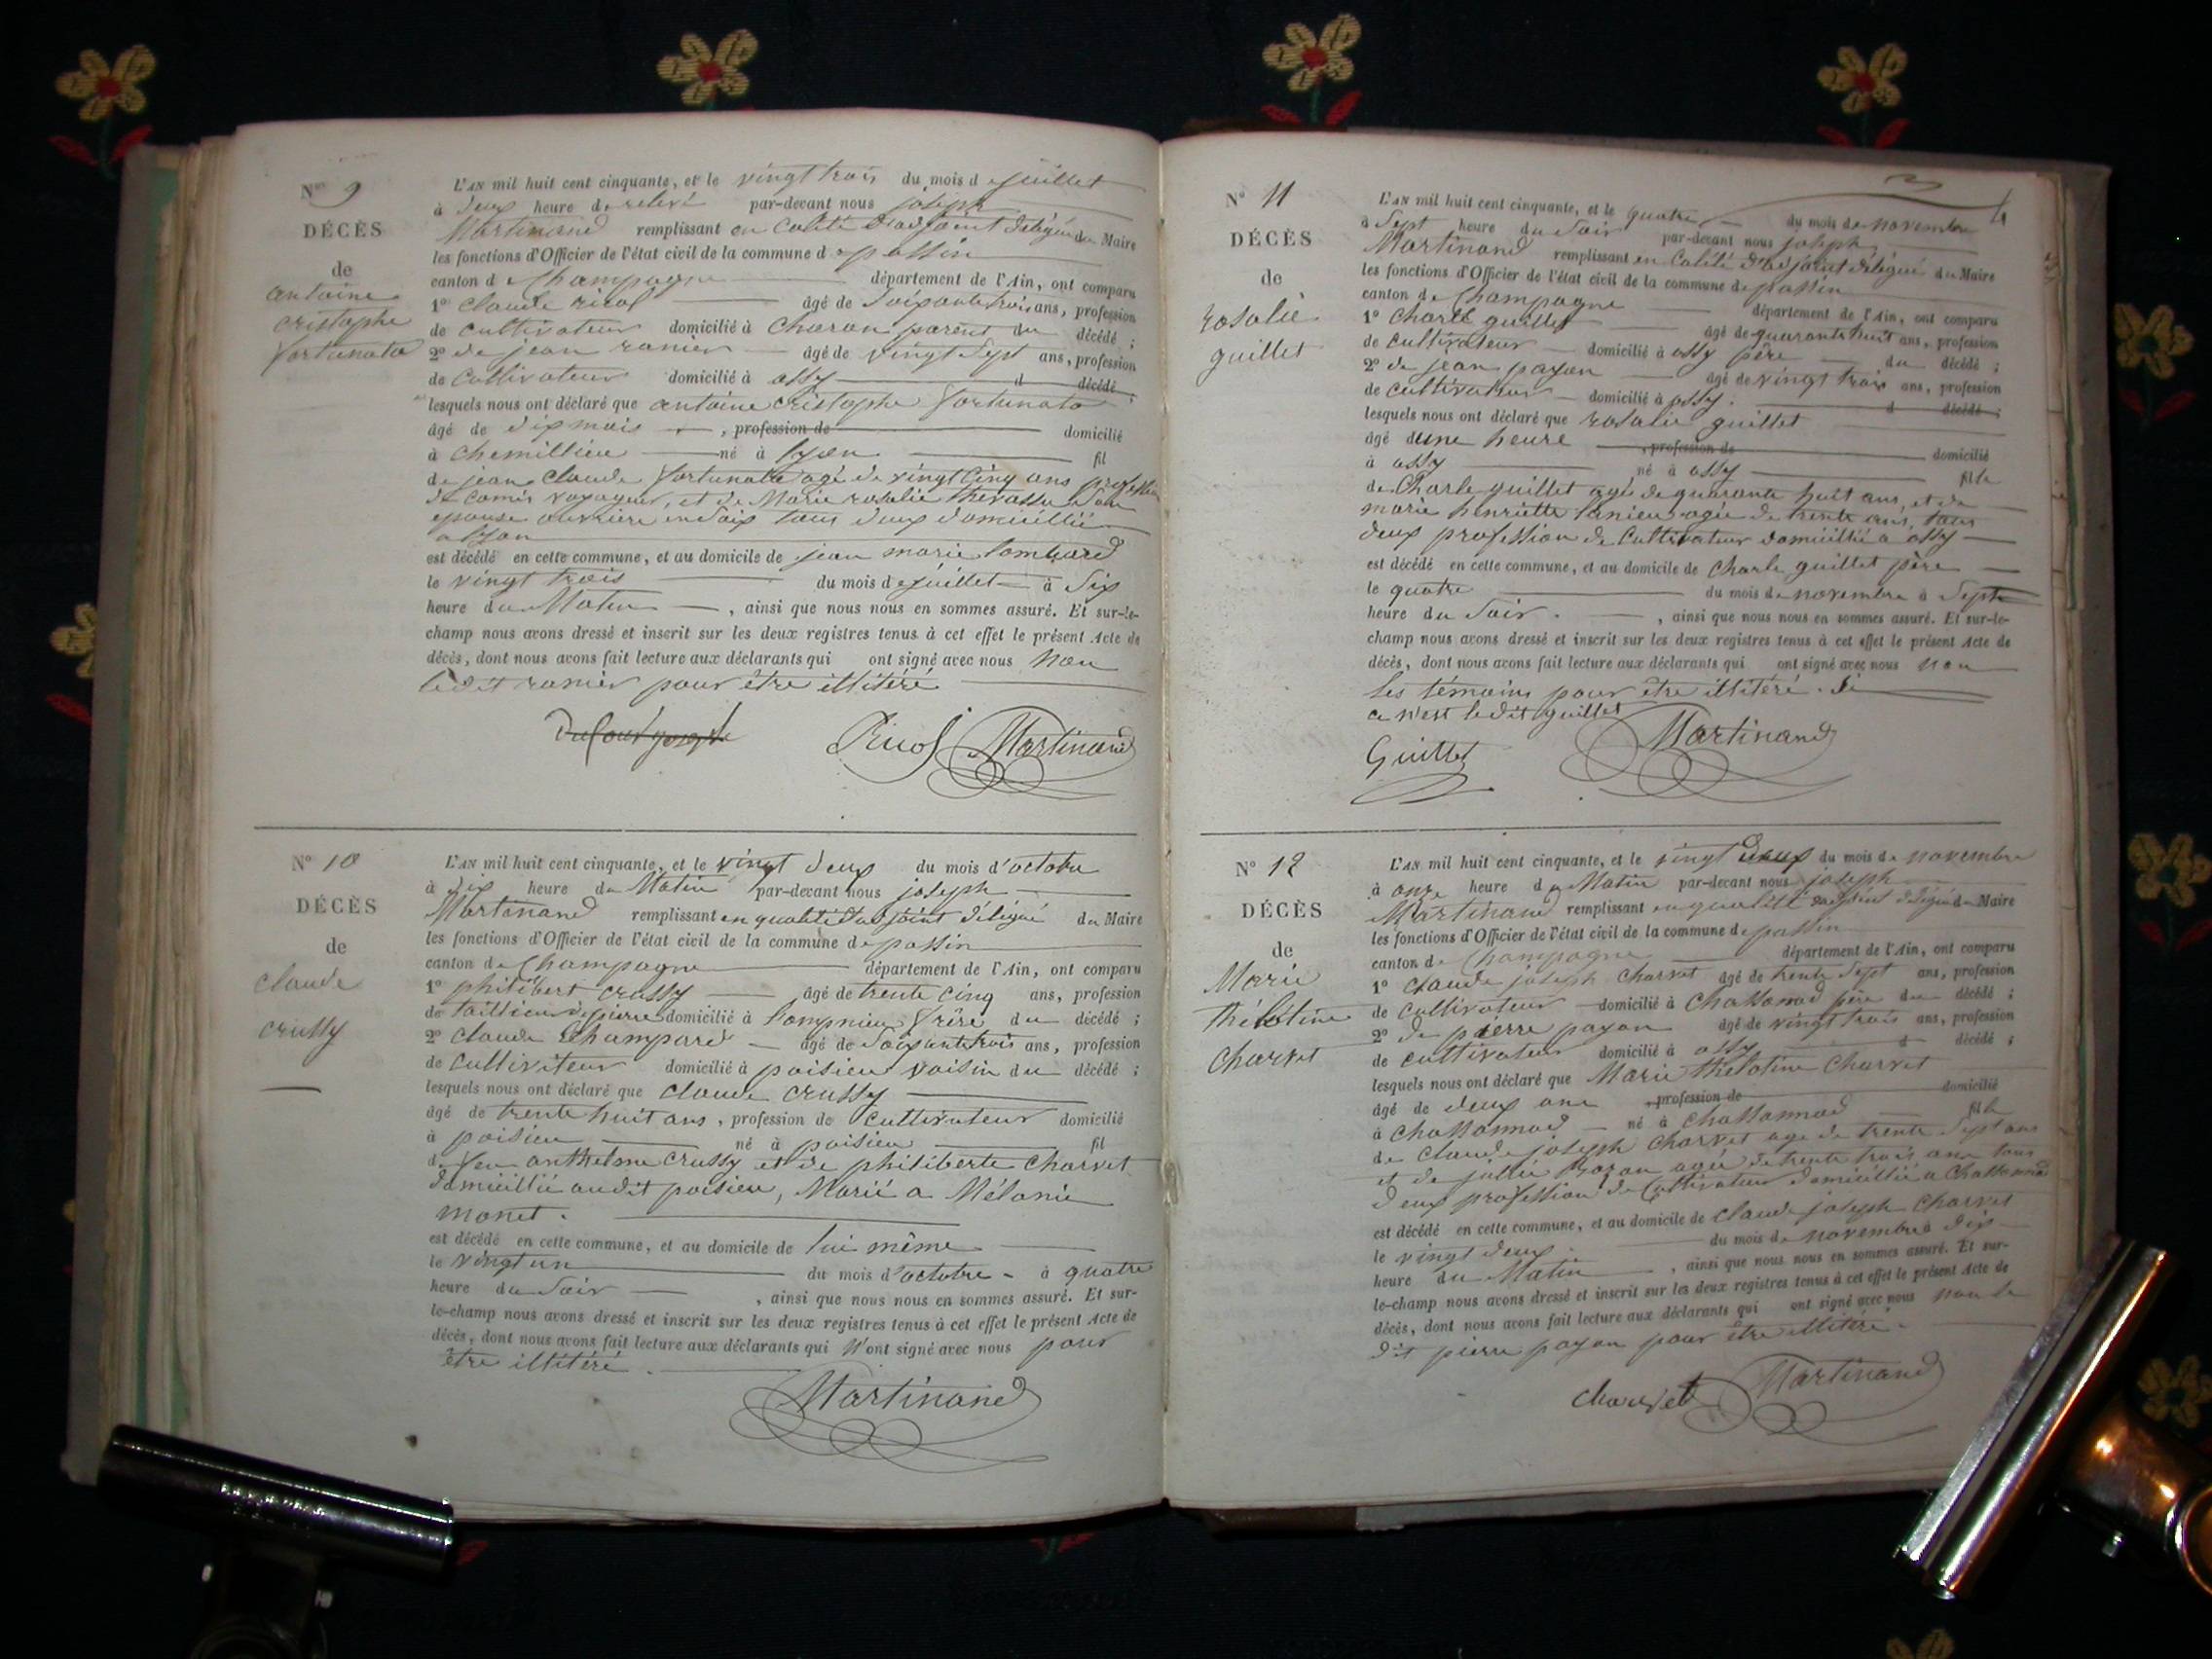 N° 9
DÉCÈS
de
antoine
cristophe
fortunato
L'AN mil huit cent cinquante, et le vingt trois du mois de juillet
à deux heure de relevé par-devant nous joseph
Martinand remplissant en calité d'adjoint délégué du Maire
les fonctions d'Officier de l'état civil de la commune de passin
canton de Champagne département de l'Ain, ont comparu
1° claude ruol âgé de soixante trois ans, profession
de cultivateur domicilié à charon parent du décédé ;
2° de jean ranier âgé de vingt sept ans, profession
de cultivateur domicilié à ossy d décédé ;
lesquels nous ont déclaré que antoine cristophe fortunato
âgé de dix mois , profession de domicilié
à chemillieu né à lyon fil
de jean claude fortunato agé de vingt cinq ans profession
de comis voyageur, et de Marie rosalie thevasse son
epouse ouvriere en soix tous deux domicillié
a lyon
est décédé en cette commune, et au domicile de jean marie lombard
le vingt trois du mois de juillet à six
heure du Matin , ainsi que nous nous en sommes assuré. Et sur-le-
champ nous avons dressé et inscrit sur les deux registres tenus à cet effet le présent Acte de
décès, dont nous avons fait lecture aux déclarants qui ont signé avec nous non
ledit ranier pour être illitéré
Ruol Martinand
N° 10
DÉCÈS
de
claude
crussy
L'AN mil huit cent cinquante, et le vingt deux du mois d'octobre
à dix heure du Matin par-devant nous joseph
Martinand remplissant en qualité d'adjoint délégué du Maire
les fonctions d'Officier de l'état civil de la commune de passin
canton de Champagne département de l'Ain, ont comparu
1° philibert crussy âgé de trente cinq ans, profession
de taillieur de pierre domicilié à lompnieu frère du décédé ;
2° claude Champard âgé de soixante trois ans, profession
de cultiviteur domicilié à poisieu voisin du décédé ;
lesquels nous ont déclaré que claude crussy
âgé de trente huit ans, profession de cultivateur domicilié
à poisieu né à poisieu fil
de feu anthelme crussy et de philiberte charvet
domicillié audit poisieu, Marié a Mélanie
monet.
est décédé en cette commune, et au domicile de lui même
le vingt un du mois d'octobre à quatre
heure du soir , ainsi que nous nous en sommes assuré. Et sur-
le-champ nous avons dressé et inscrit sur les deux registres tenus à cet effet le présent Acte de
décès, dont nous avons fait lecture aux déclarants qui N'ont signé avec nous pour
être illitéré.
Martinand
N° 11
DÉCÈS
de
rosalie
guillet
L'AN mil huit cent cinquante, et le quatre du mois de novembre
à sept heure du soir par-devant nous joseph
Martinand remplissant en calité d'adjoint délégué du Maire
les fonctions d'Officier de l'état civil de la commune de passin
canton de Champagne département de l'Ain, ont comparu
1° charle guillet âgé de quarante huit ans, profession
de cultivateur domicilié à ossy père du décédé ;
2° de jean payan âgé de vingt trois ans, profession
de cultivateur domicilié à ossy. d décédé ;
lesquels nous ont déclaré que rosalie guillet
âgé dune heure , profession de domicilié
à ossy né à ossy fille
de Charle guillet agé de quarante huit ans, et de
marie henriette agée de trente ans, tous
deux profession de Cultivateur domicillié a ossy
est décédé en cette commune, et au domicile de charle guillet père
le quatre du mois de novembre à sept
heure du soir. , ainsi que nous nous en sommes assuré. Et sur-le-
champ nous avons dressé et inscrit sur les deux registres tenus à cet effet le présent Acte de
décès, dont nous avons fait lecture aux déclarants qui ont signé avec nous non
les témoins pour être illitéré. si
ce n'est ledit guillet
Guillet Martinand
N° 12
DÉCÈS
de
Marie
thélotine
charvet
L'AN mil huit cent cinquante, et le vingt deux du mois de novembre
à onze heure du Matin par-devant nous joseph
Martinand remplissant en qualité d'adjoint délégué du Maire
les fonctions d'Officier de l'état civil de la commune de passin
canton de Champagne département de l'Ain, ont comparu
1° claude joseph charvet âgé de trente sept ans, profession
de cultivateur domicilié à chassonnod père du décédé ;
2° de pierre payan âgé de vingt trois ans, profession
de cultivateur domicilié à ossy d décédé ;
lesquels nous ont déclaré que Marie thelotine charvet
âgé de deux ans , profession de domicilié
à chassonnod né à chassonnod fille
de claude joseph charvet age de trente sept ans
et de julie agée de trente trois ans tous
deux profession de Cultivateur domicillié a Chassonnod
est décédé en cette commune, et au domicile de claude joseph charvet
le vingt deux du mois de novembre à dix
heure du Matin , ainsi que nous nous en sommes assuré. Et sur-
le-champ nous avons dressé et inscrit sur les deux registres tenus à cet effet le présent Acte de
décès, dont nous avons fait lecture aux déclarants qui ont signé avec nous non le
dit pierre payan pour être illitéré.
charvet Martinand